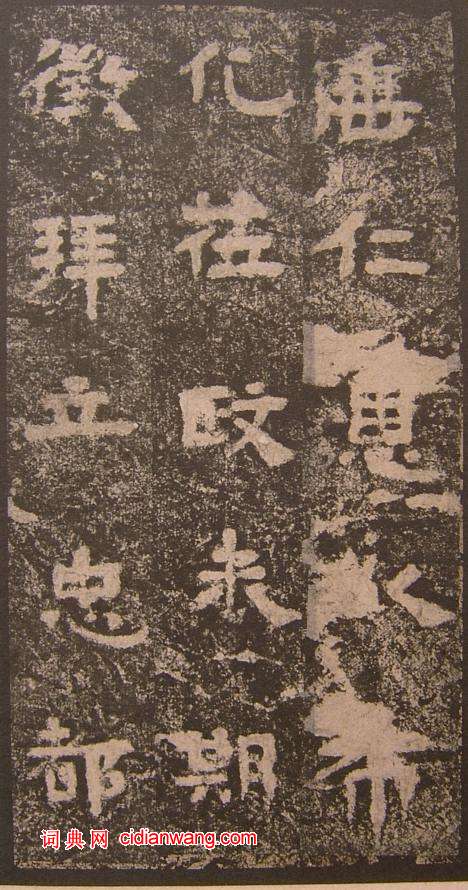 仁惠以布
化莅政未期
徵拜立忠都
词典网 cidianwang.com